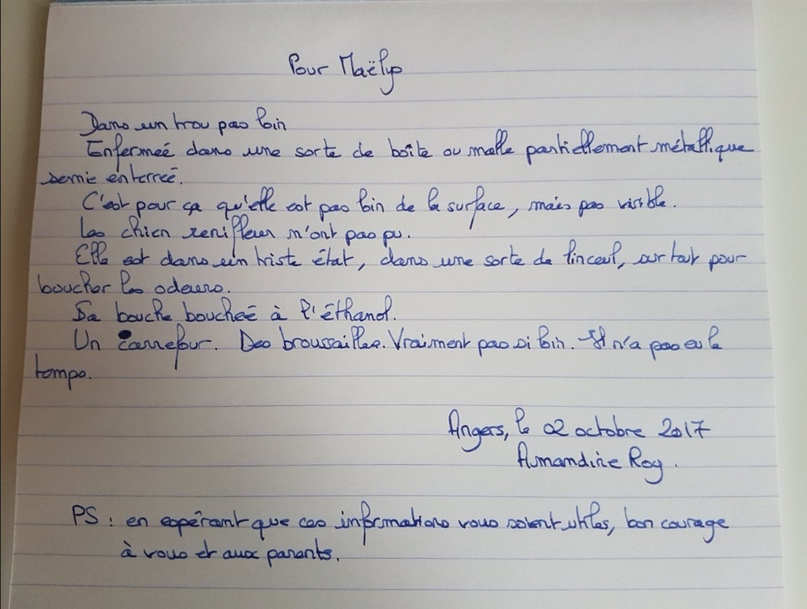 Pour Maëlys
Dans un trou pas loin
Enfermeé dans une sorte de boîte ou malle partiellement métallique
demie enterreé.
C'est pour ça qu'elle est pas loin de la surface, mais pas visible.
Les chien renifleur n'ont pas pu.
Elle est dans un triste état, dans une sorte de linceul, surtout pour
boucher les odeurs.
Sa bouche boucheé à l'éthanol.
Un carrefour. Des broussailles. Vraiment pas si loin. Il n'a pas eu le
temps.
Angers, le 02 octobre 2017
Amandine Roy.
PS : en espérant que ces informations vous soient utiles, bon courage
à vous et aux parents.